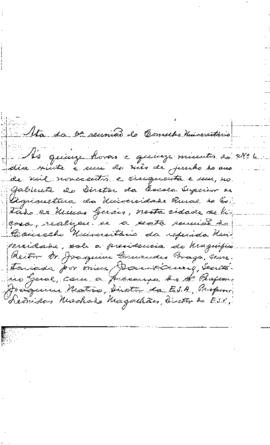 Ata da 6ª reunião do Conselho Universitário
Às quinze horas e quinze minutos do
dia vinte e um do mês de junho do ano
de mil novecentos e cinquenta e um, no
gabinete do Diretor da Escola Superior de
Agricultura da Universidade Rural do Es-
tado de Minas Gerais, nesta cidade de Vi-
çosa, realizou-se a sexta reunião do
Conselho Universitário da referida Uni-
versidade, sob a presidencia do Magnífico
Reitor Dr. Joaquim Fernandes Braga, secre-
tariada por mim, Secretá-
rio Geral, com a presença do Sr. Professor
Joaquim Matoso, Diretor da E.S.A., Professor
Machado Magalhães, Diretor do E.S.V.,